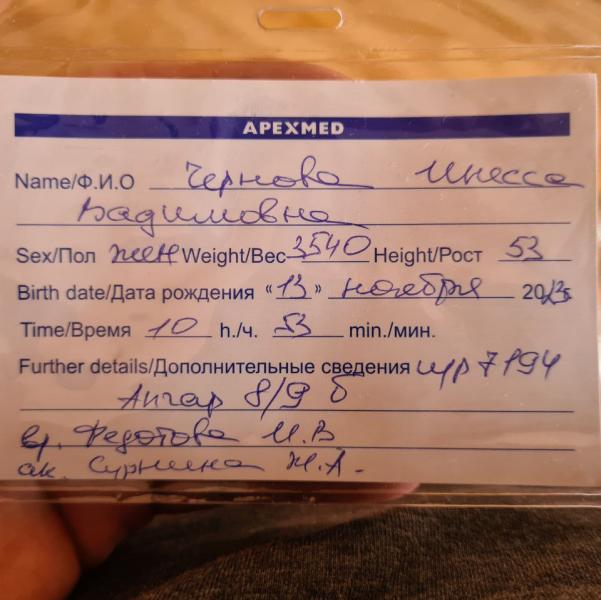 APEXMED
Name/Ф.И.О Чернова Инесса
Вадимовна
Sex/Пол жен Weight/Вес 3540 Height/Рост 53
Birth date/Дата рождения «13» ноября 2023
Time/Время 10 h./ч. 53 min./мин.
Further details/Дополнительные сведения и/р 7194
Апгар 8/9 б
вр. Федотова И.В
ак. Сурнина Ж.А.